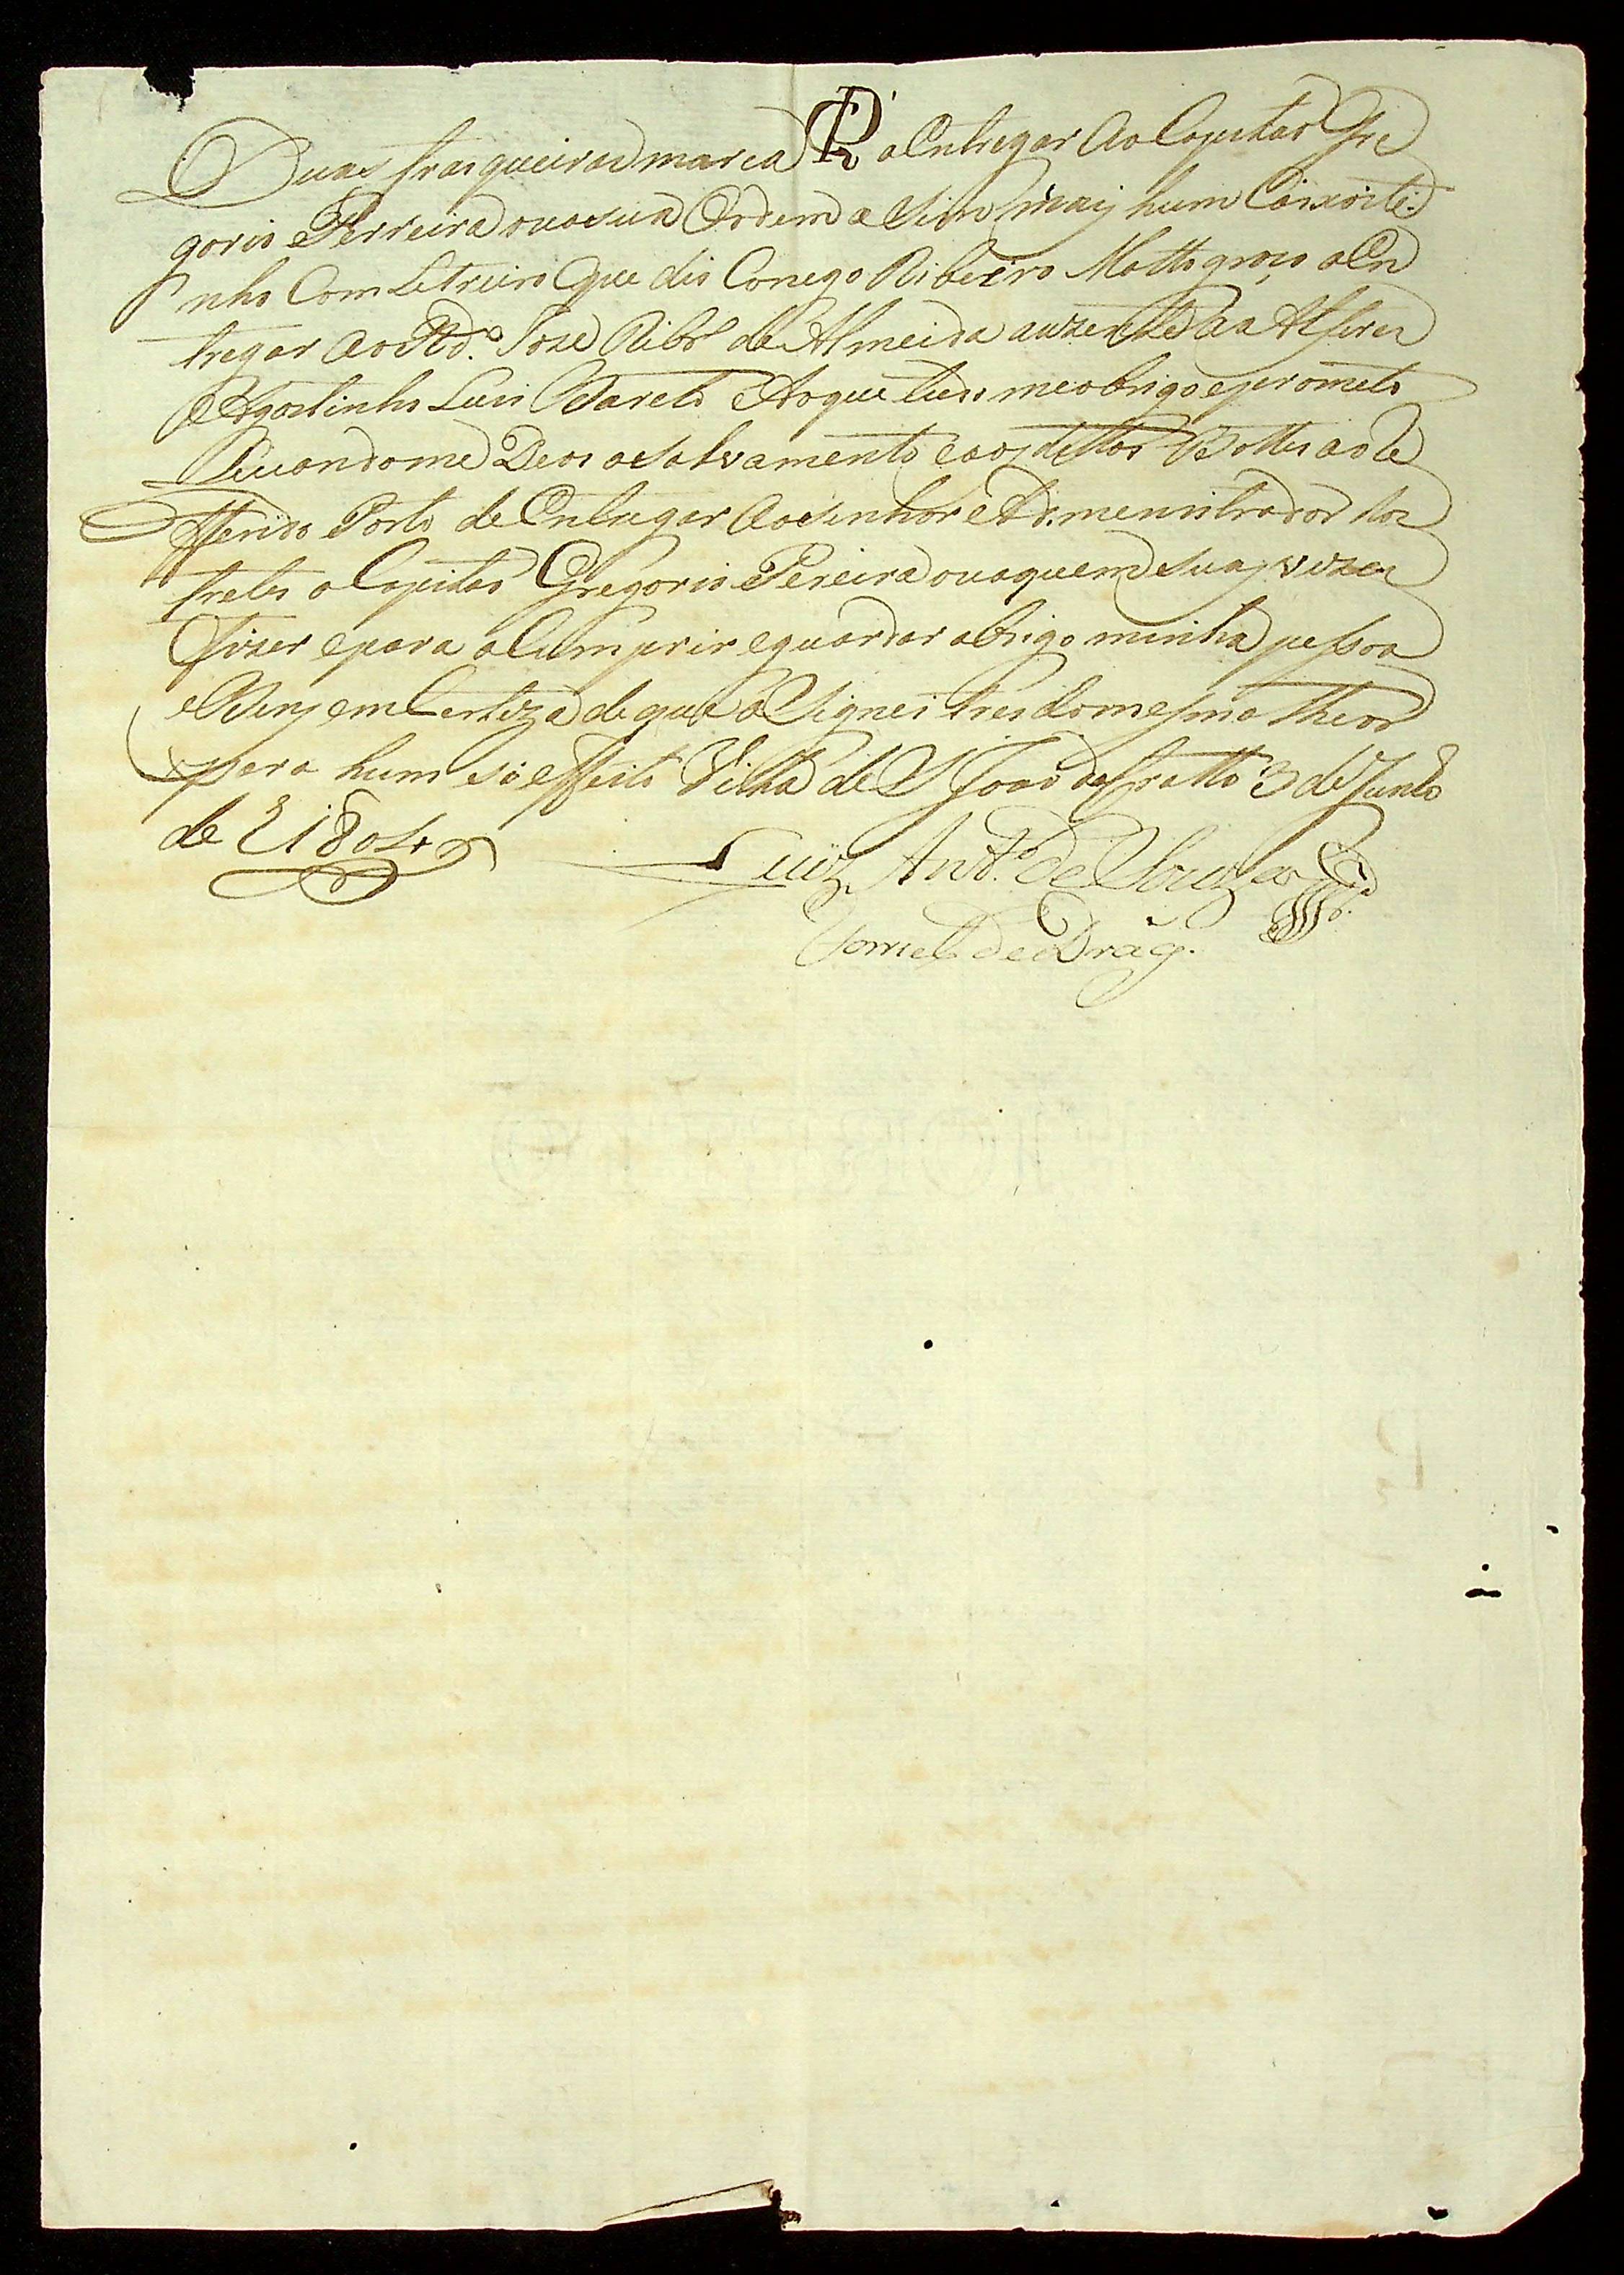 Duas frasqueiras marca PR a Entregar Ao Capitao Gre
gorio Perreira ou a sua Ordem a Sim mais hum Caixoite
nho Com Letreiro Que dis Conego Ribeiro Mattogroço a En
tregar ao Rdº Joze Ribrº de Almeida auzente ao Alferes
Agostinho Luis Bareto Ao que tudo me obrigo e prometo
Levandome Deos a salvamento e aos dittos Bottes ao Re
fferido Porto de Entregar Ao senhor Admenistrador dos
fretes o Capitao Gregorio Pereira ou a quem suas vezes
fizer e para o Cumprir e guardar obrigo minha pessoa
e Bens em Certeza de que a Signei tres do mesmo theor
para hum só effeito Villa de S Joao do Cratto 3 de Junho
de 1804
Luiz Antº de Souza
de Drag.